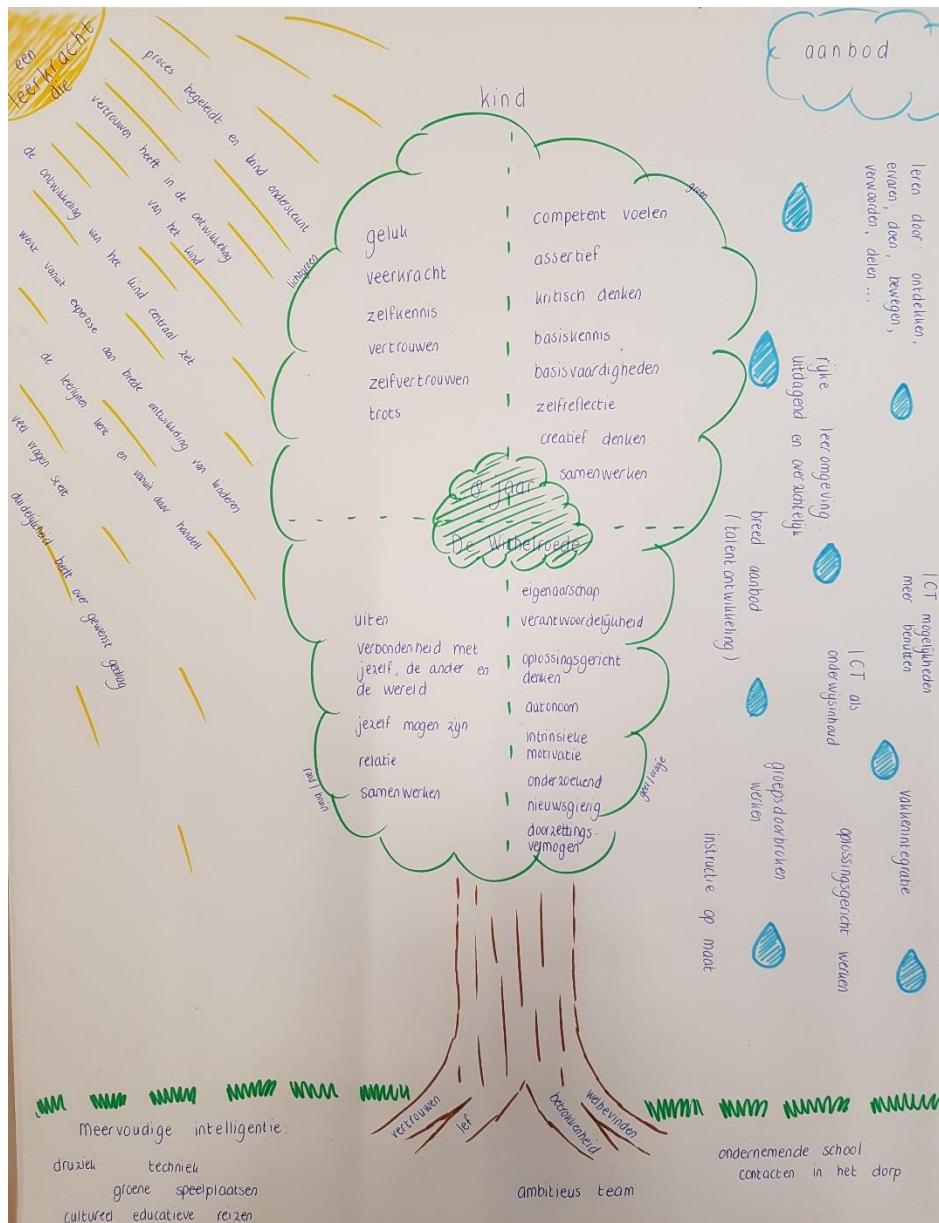 een
leerkracht
die
proces begeleidt en kind ondersteunt
vertrouwen heeft in de ontwikkeling
van het kind
de ontwikkeling van het kind centraal zet
werkt vanuit expertise aan brede ontwikkeling van kinderen
de leerlijnen kent en vanuit daar handelt
veel vragen stelt
duidelijkheid biedt over gewenst gedrag
kind
lichtgroen
groen
geluk
veerkracht
zelfkennis
vertrouwen
zelfvertrouwen
trots
competent voelen
assertief
kritisch denken
basiskennis
basisvaardigheden
zelfreflectie
creatief denken
samenwerken
jaar
De Withelroede
uiten
verbondenheid met
jezelf, de ander en
de wereld
jezelf mogen zijn
relatie
samenwerken
rood/bruin
eigenaarschap
verantwoordelijkheid
oplossingsgericht
denken
autonoom
intrinsieke
motivatie
onderzoekend
nieuwsgierig
doorzettings-
vermogen
geel/oranje
aanbod
leren door: ontdekken,
ervaren, doen, bewegen,
verwoorden, delen ...
rijke leeromgeving:
uitdagend en overzichtelijk
breed aanbod
(talentontwikkeling)
ICT mogelijkheden
meer benutten
ICT als
onderwijsinhoud
groepsdoorbroken
werken
vakkenintegratie
oplossingsgericht werken
instructie op maat
vertrouwen
lef
betrokkenheid
welbevinden
Meervoudige intelligentie:
druziek techniek
groene speelplaatsen
cultureel educatieve reizen
ambitieus team
ondernemende school:
contacten in het dorp